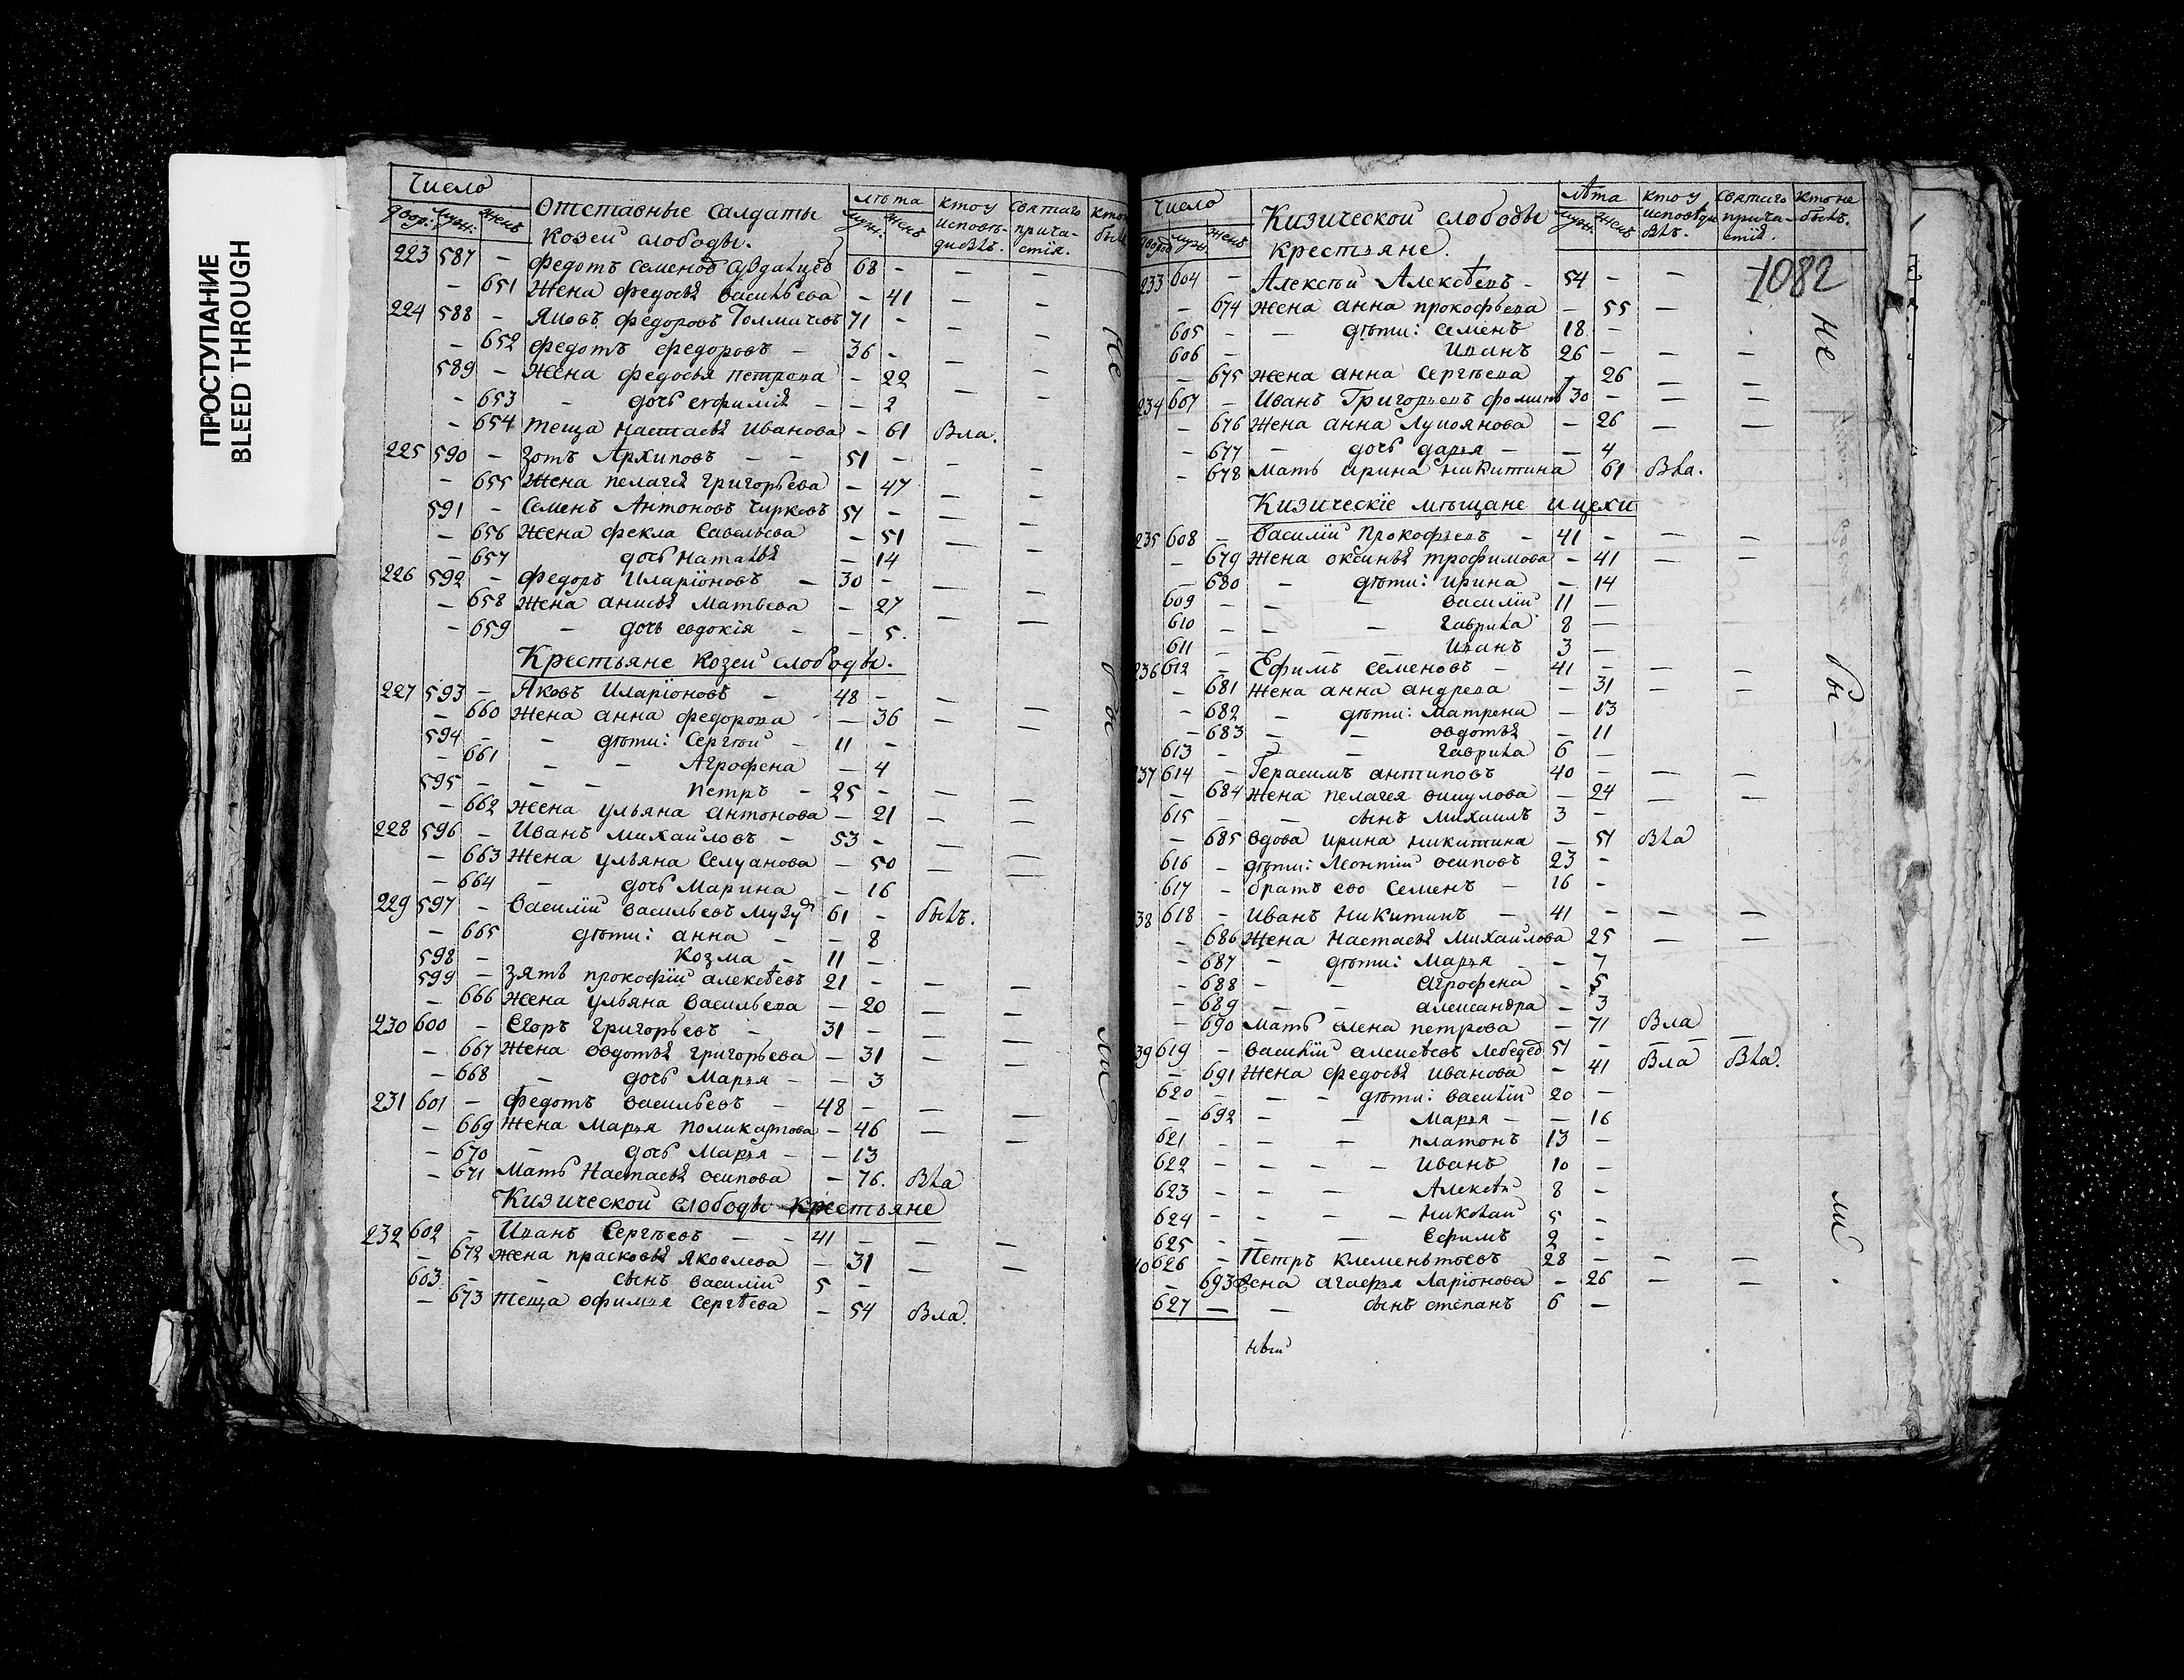 ПРОСТУПАНИЕ
BLEED THROUGH
Число
двор: муж: женъ
Отставные Салдаты
козеи слободы.
лѣта
муж. женъ
кто у исповѣ-
святаго прича-
стія.
223 587 – Федотъ Семенов 68 –
– 651 Жена федосья васильева – 41 – –
224 588 – Яковъ федоровъ 71 – – –
– 652 федотъ федоровъ – 36 – – –
589 – Жена федосья петрова – 22 – –
– 653 – дочь ефимія – – 2
– 654 теща Настасья Иванова – 61 Бла.
225 590 – Зотъ Архиповъ – – 51 – – –
– 655 Жена пелагея григорьева – 47 – –
591 – Семенъ Антоновъ Чирковъ 51 – – –
– 656 Жена фекла Савельева – 51 – –
– 657 дочь Наталья – 14
226 592 – Федоръ Иларіоновъ – 30 – – –
– 658 Жена анисья Матвеева – 27 – –
– 659 – дочь евдокія – – 5.
Крестьяне Козеи слободы.
227 593 – Яковъ Иларіоновъ – 48 – – –
– 660 Жена анна федорова – 36 – –
594 – – дѣти: Сергѣи – 11 –
– 661 – – Агрофена – 4
595 – – – петръ – 25 – – –
– 662 Жена ульяна антонова – 21 – –
228 596 – Иванъ михаиловъ – 53 – – –
– 663 Жена ульяна Селуанова – 50 – –
– 664 – дочь Марина – 16
229 597 – Василіи васильевъ 61 – былъ.
– 665 дѣти: анна – – 8
598 – Козма – 11 –
599 – зять прокофіи алексѣевъ 21 – – –
– 666 Жена ульяна васильева – 20 – –
230 600 – Егоръ григорьевъ – 31 – – –
– 667 Жена овдотья григорьева – 31 – –
– 668 – дочь Марья – – 3
231 601 – федотъ васильевъ – 48 – – –
– 669 Жена Марья поликарпова – 46 – –
– 670 – дочь Марья – – 13
– 671 Мать Настасья осипова – 76. Бла
Кизической слободы крестьяне
232 602 – Иванъ Сергѣевъ – – 41 – – –
– 672 Жена прасковья Яковлева – 31 – –
603 – – сынъ василіи 5 –
– 673 теща офимья Сергѣева – 54 Бла.
не
бы
ли
Число
двор муж женъ
Кизической слободы
крестьяне.
лѣта
муж. женъ
кто у исповѣди
былъ.
святаго прича-
стія.
кто не
былъ.
1082
233 604 – Алексѣи Алексѣевъ – 54 – – –
– 674 Жена анна прокофьева – 55 –
605 – – дѣти: семенъ 18 –
606 – Иванъ 26 – – –
– 675 Жена анна Сергѣева – 26 – –
234 607 – Иванъ Григорьевъ фоминъ 30 – – –
– 676 Жена анна Лукоянова – 26 – –
– 677 – дочь дарья – – 4
– 678 Мать ирина никитина 61 Бла.
Кизическіе мѣщане и цехи
235 608 – Василіи Прокофьевъ – 41 – – –
– 679 Жена оксинья трофимова – 41 – –
– 680 – дѣти: ирина – 14
609 – – – василіи 11 –
610 – – – гаврила 8 –
611 – – – Иванъ 3 –
236 612 – Ефимъ семеновъ – 41 – – –
– 681 Жена анна андреева – 31 – –
– 682 – дѣти: Матрена – 13
– 683 – – овдотья – 11
613 – – – гаврила 6 –
37 614 – Герасимъ антиповъ 40 – – –
– 684 Жена пелагея викулова – 24 – –
615 – – сынъ михаилъ 3 –
– 685 вдова ирина никитина – 51 Бла
616 – дѣти: Леонтіи осиповъ 23 –
617 – братъ ево Семенъ – 16 –
38 618 – Иванъ Никитинъ – 41 – – –
– 686 Жена Настасья Михаилова 25 – –
– 687 – дѣти: Марья – 7
– 688 – – Агрофена – 5
– 689 – – александра – 3
– 690 Мать алена петрова – 71 Бла
39 619 – василіи алексѣевъ Лебедев 51 – – –
– 691 Жена федосья Иванова – 41 Бла Бла.
620 – – – дѣти: василіи 20 –
– 692 – – Марья – – 16
621 – – – платонъ 13 –
622 – – – – Иванъ 10 –
623 – – – Алексѣи 8 –
624 – – – – Николаи 5 –
625 – – – Ефимъ 2 –
40 626 – Петръ клеменьтьевъ 28 – – –
– 693 Жена агафья Ларіонова – 26 – –
627 – – сынъ степанъ 6 –
не
бы –
ли.